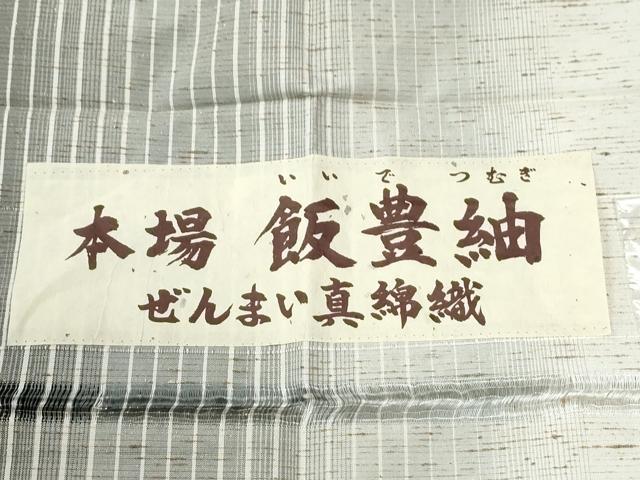 いいで つむぎ
本場 飯豊紬
ぜんまい真綿織